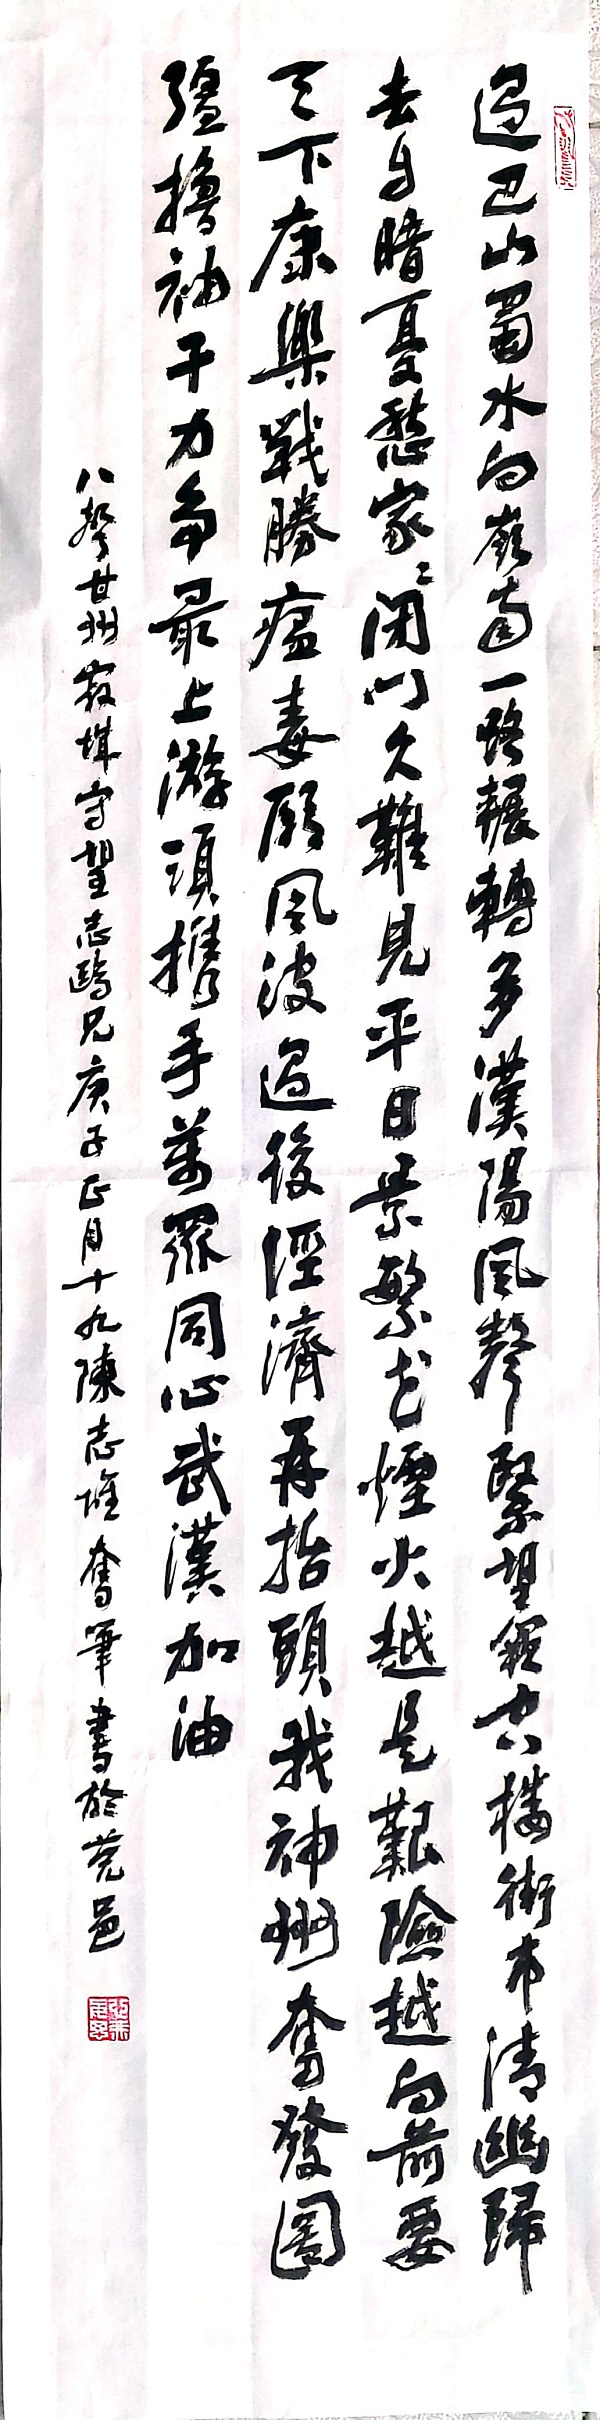 過巴山蜀水向嶺南一路輾轉多漢陽風聲緊望窗空樓街市清幽歸
去身暗憂愁家々閉門久難見平日景繁花煙火越是艱險越向前要
天下康樂戰勝瘟毒顧風波過後經濟再抬頭我神州奮發圖
強擼袖干力爭最上游須攜手萬眾同心武漢加油
八聲甘州寂城守望志鷗兄庚子正月十九陳志雄奮筆書於莞邑